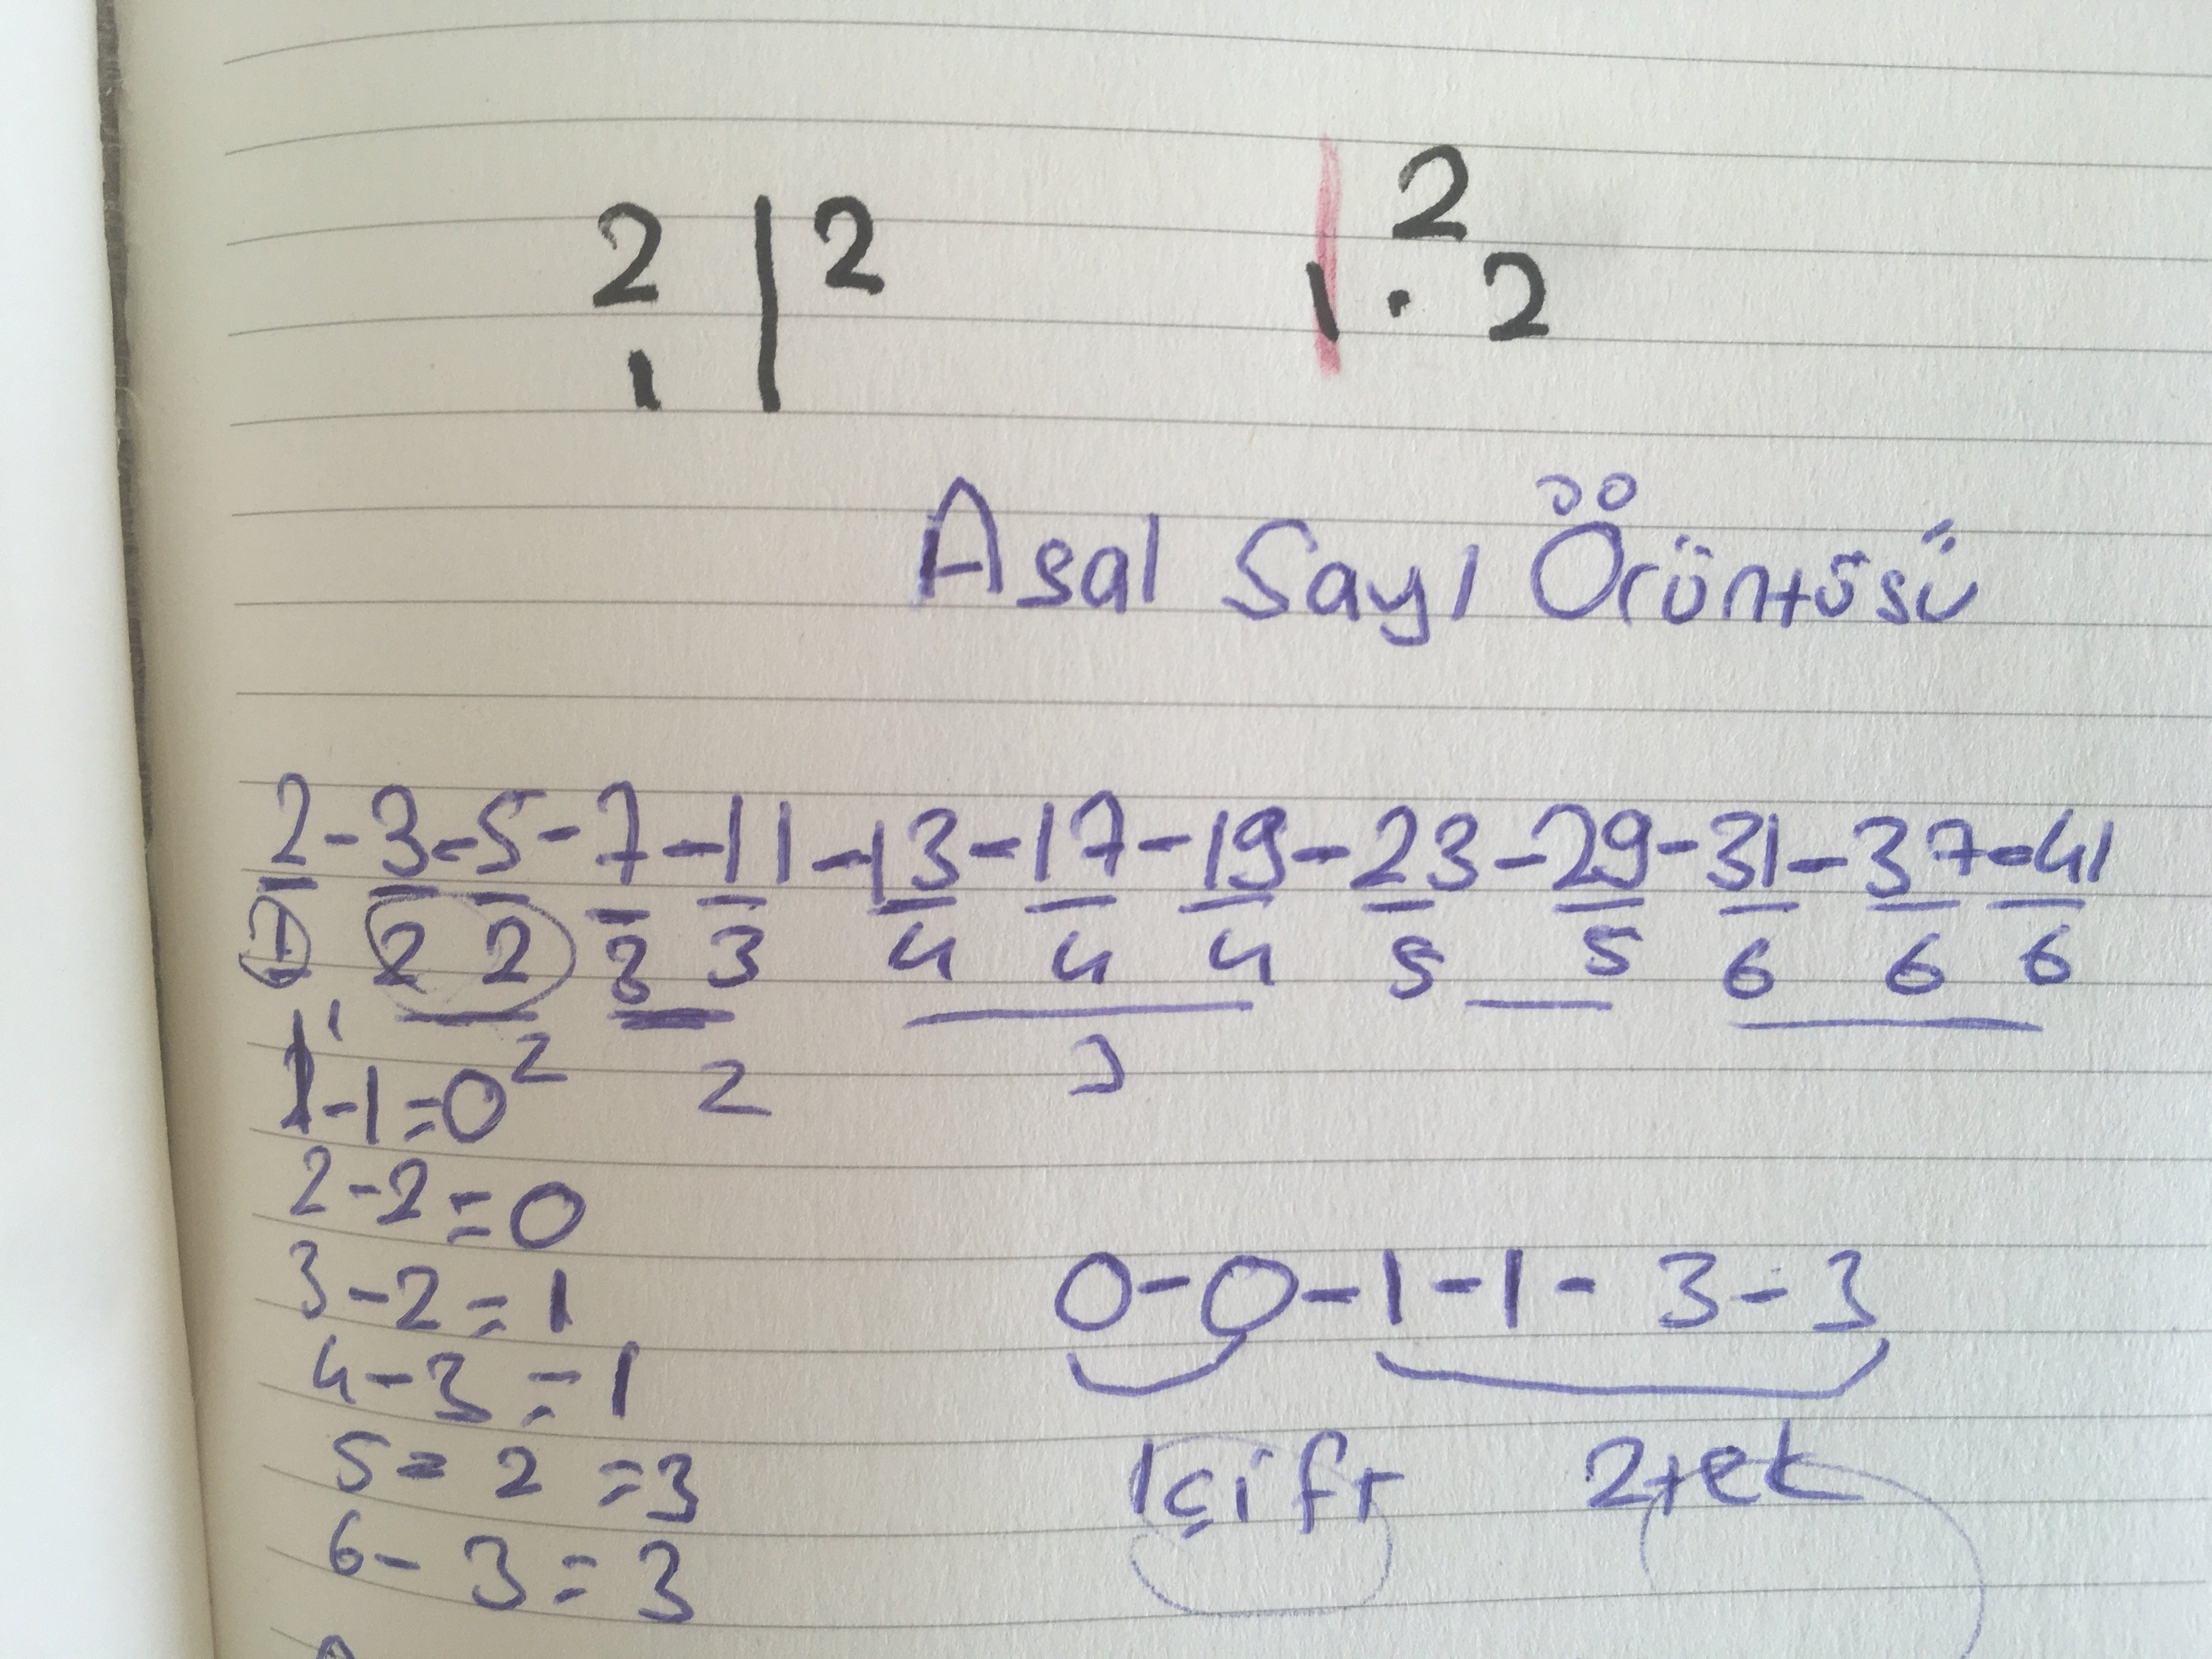 2 | 2
1
2
1 . 2
Asal Sayı Örüntüsü
2-3-5-7-11-13-17-19-23-29-31-37-41
1 2 2 3 3 4 4 4 5 5 6 6 6
2 2 3
1-1=0
2-2=0
3-2=1
4-3=1
5-2=3
6-3=3
0-0-1-1-3-3
1çift 2tek